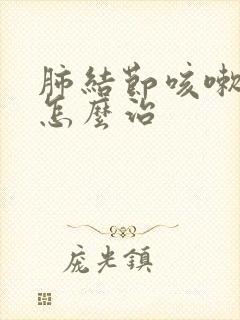 肺結節咳嗽
怎麼治
庞光鎮